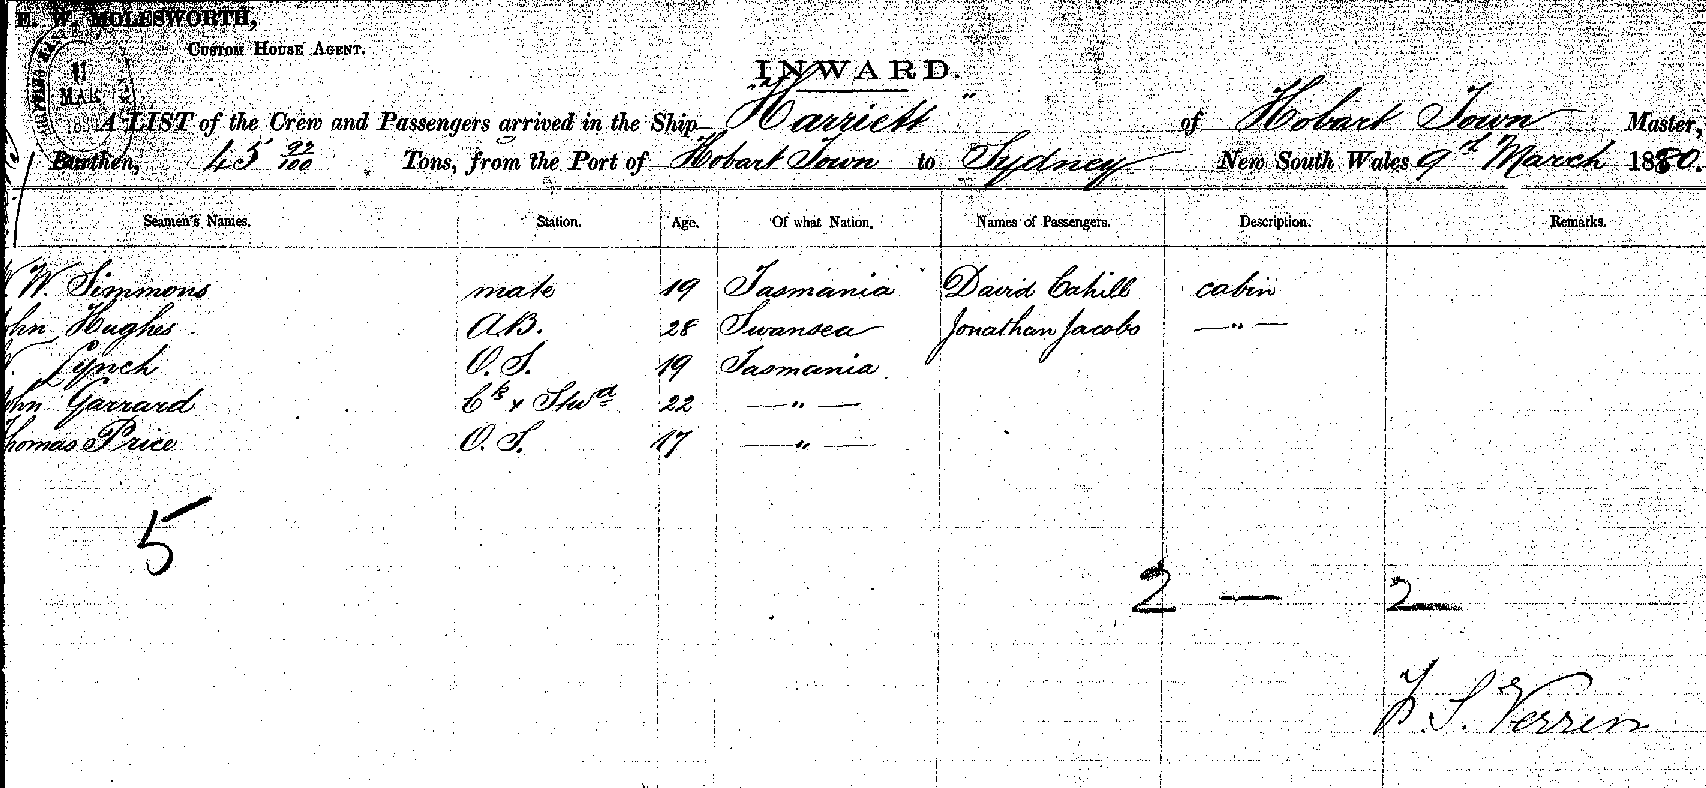 E. W. MOLESWORTH,
CUSTOM HOUSE AGENT.
11
MAR
INWARD.
A LIST of the Crew and Passengers arrived in the Ship "Harriett" of Hobart Town Master,
Burthen, 45 22/100 Tons, from the Port of Hobart Town to Sydney New South Wales 9th March 1880.
Seamen's Names. Station. Age. Of what Nation. Names of Passengers. Description. Remarks.
W. Simmons mate 19 Tasmania David Cahill cabin
ohn Hughes A.B. 28 Swansea Jonathan Jacobs — " —
Lynch O. S. 19 Tasmania
ohn Garrard Ck & Stwd 22 — " —
homas Price O. S. 17 — " —
5
2 — 2
S. Verren